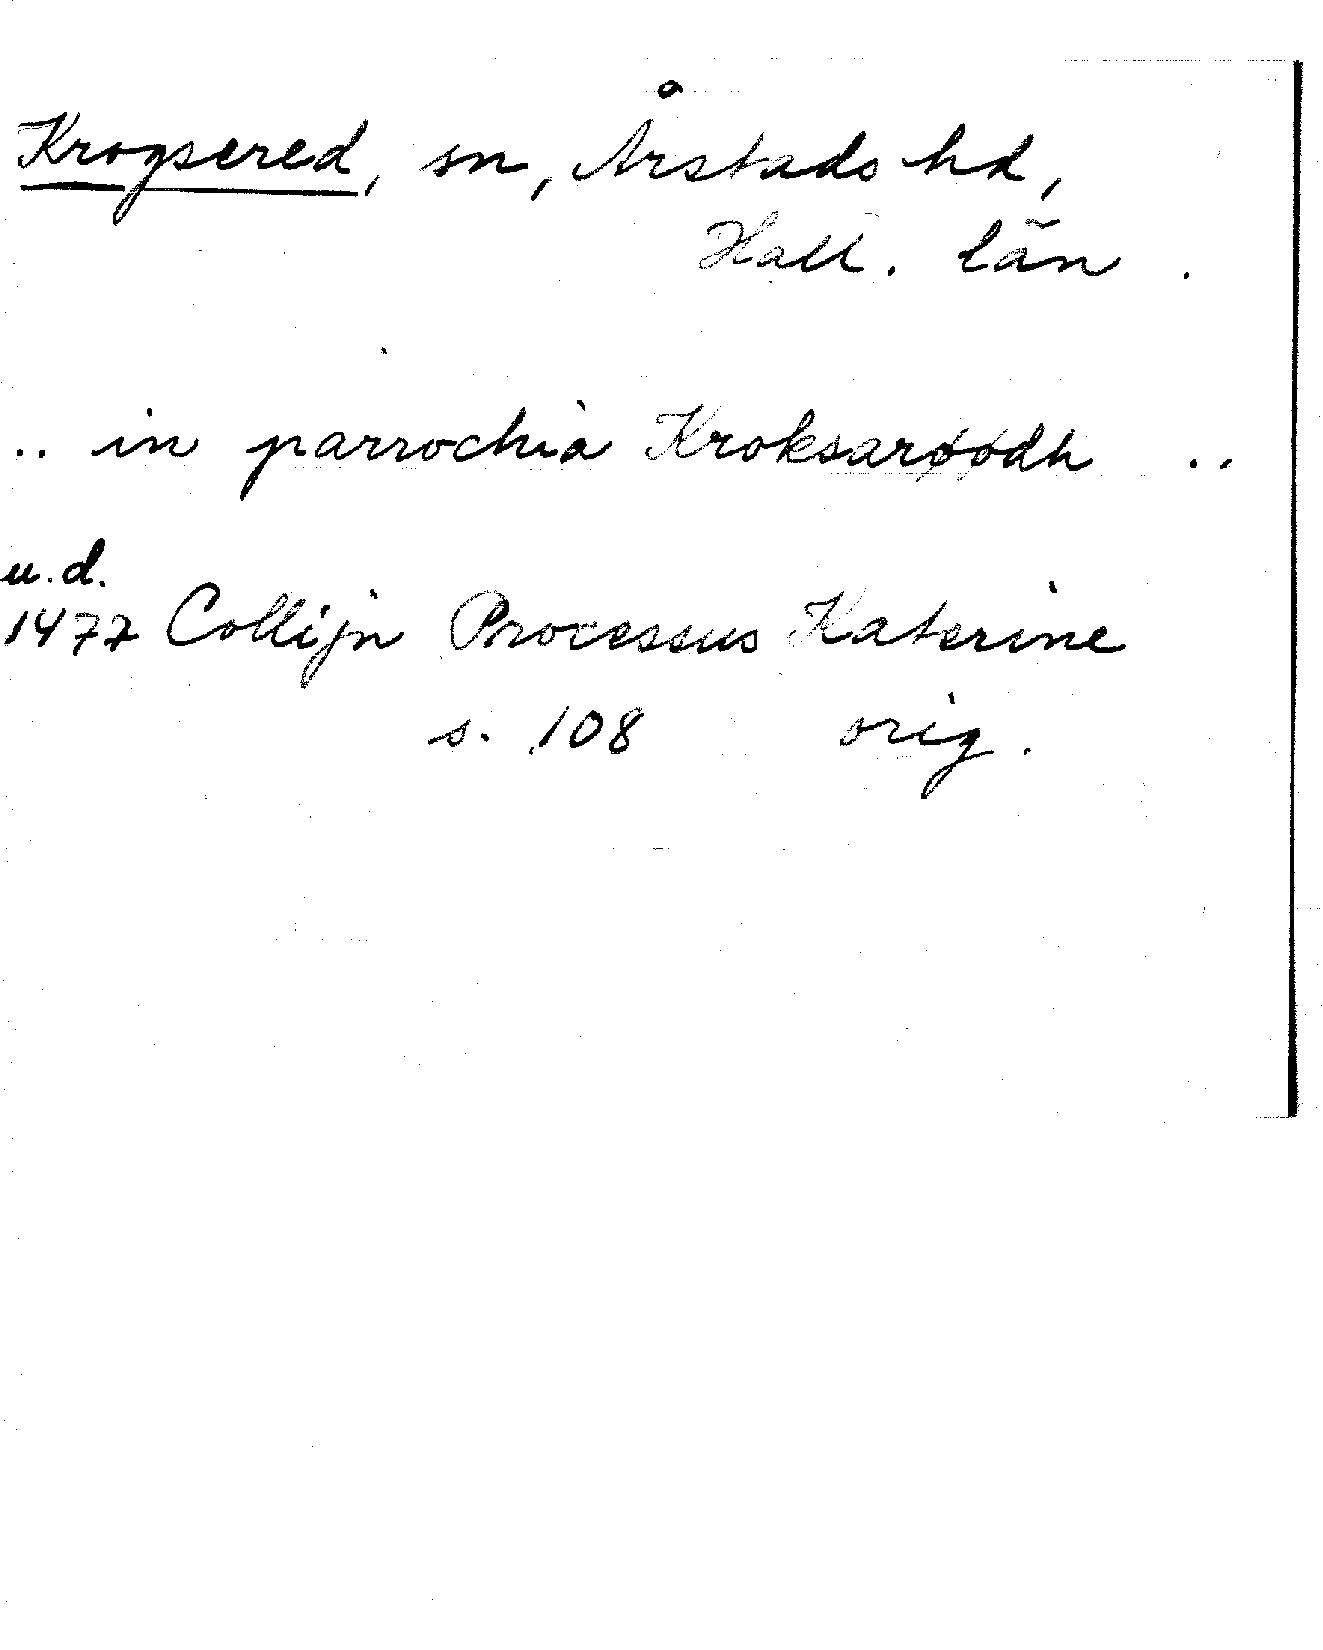 Krogsered, sn, Årstads hd,
Hall. län.
.. in parrochia Kroksarøødh ..
u.d.
1477 Collijn Processus Katerine
s. 108 orig.